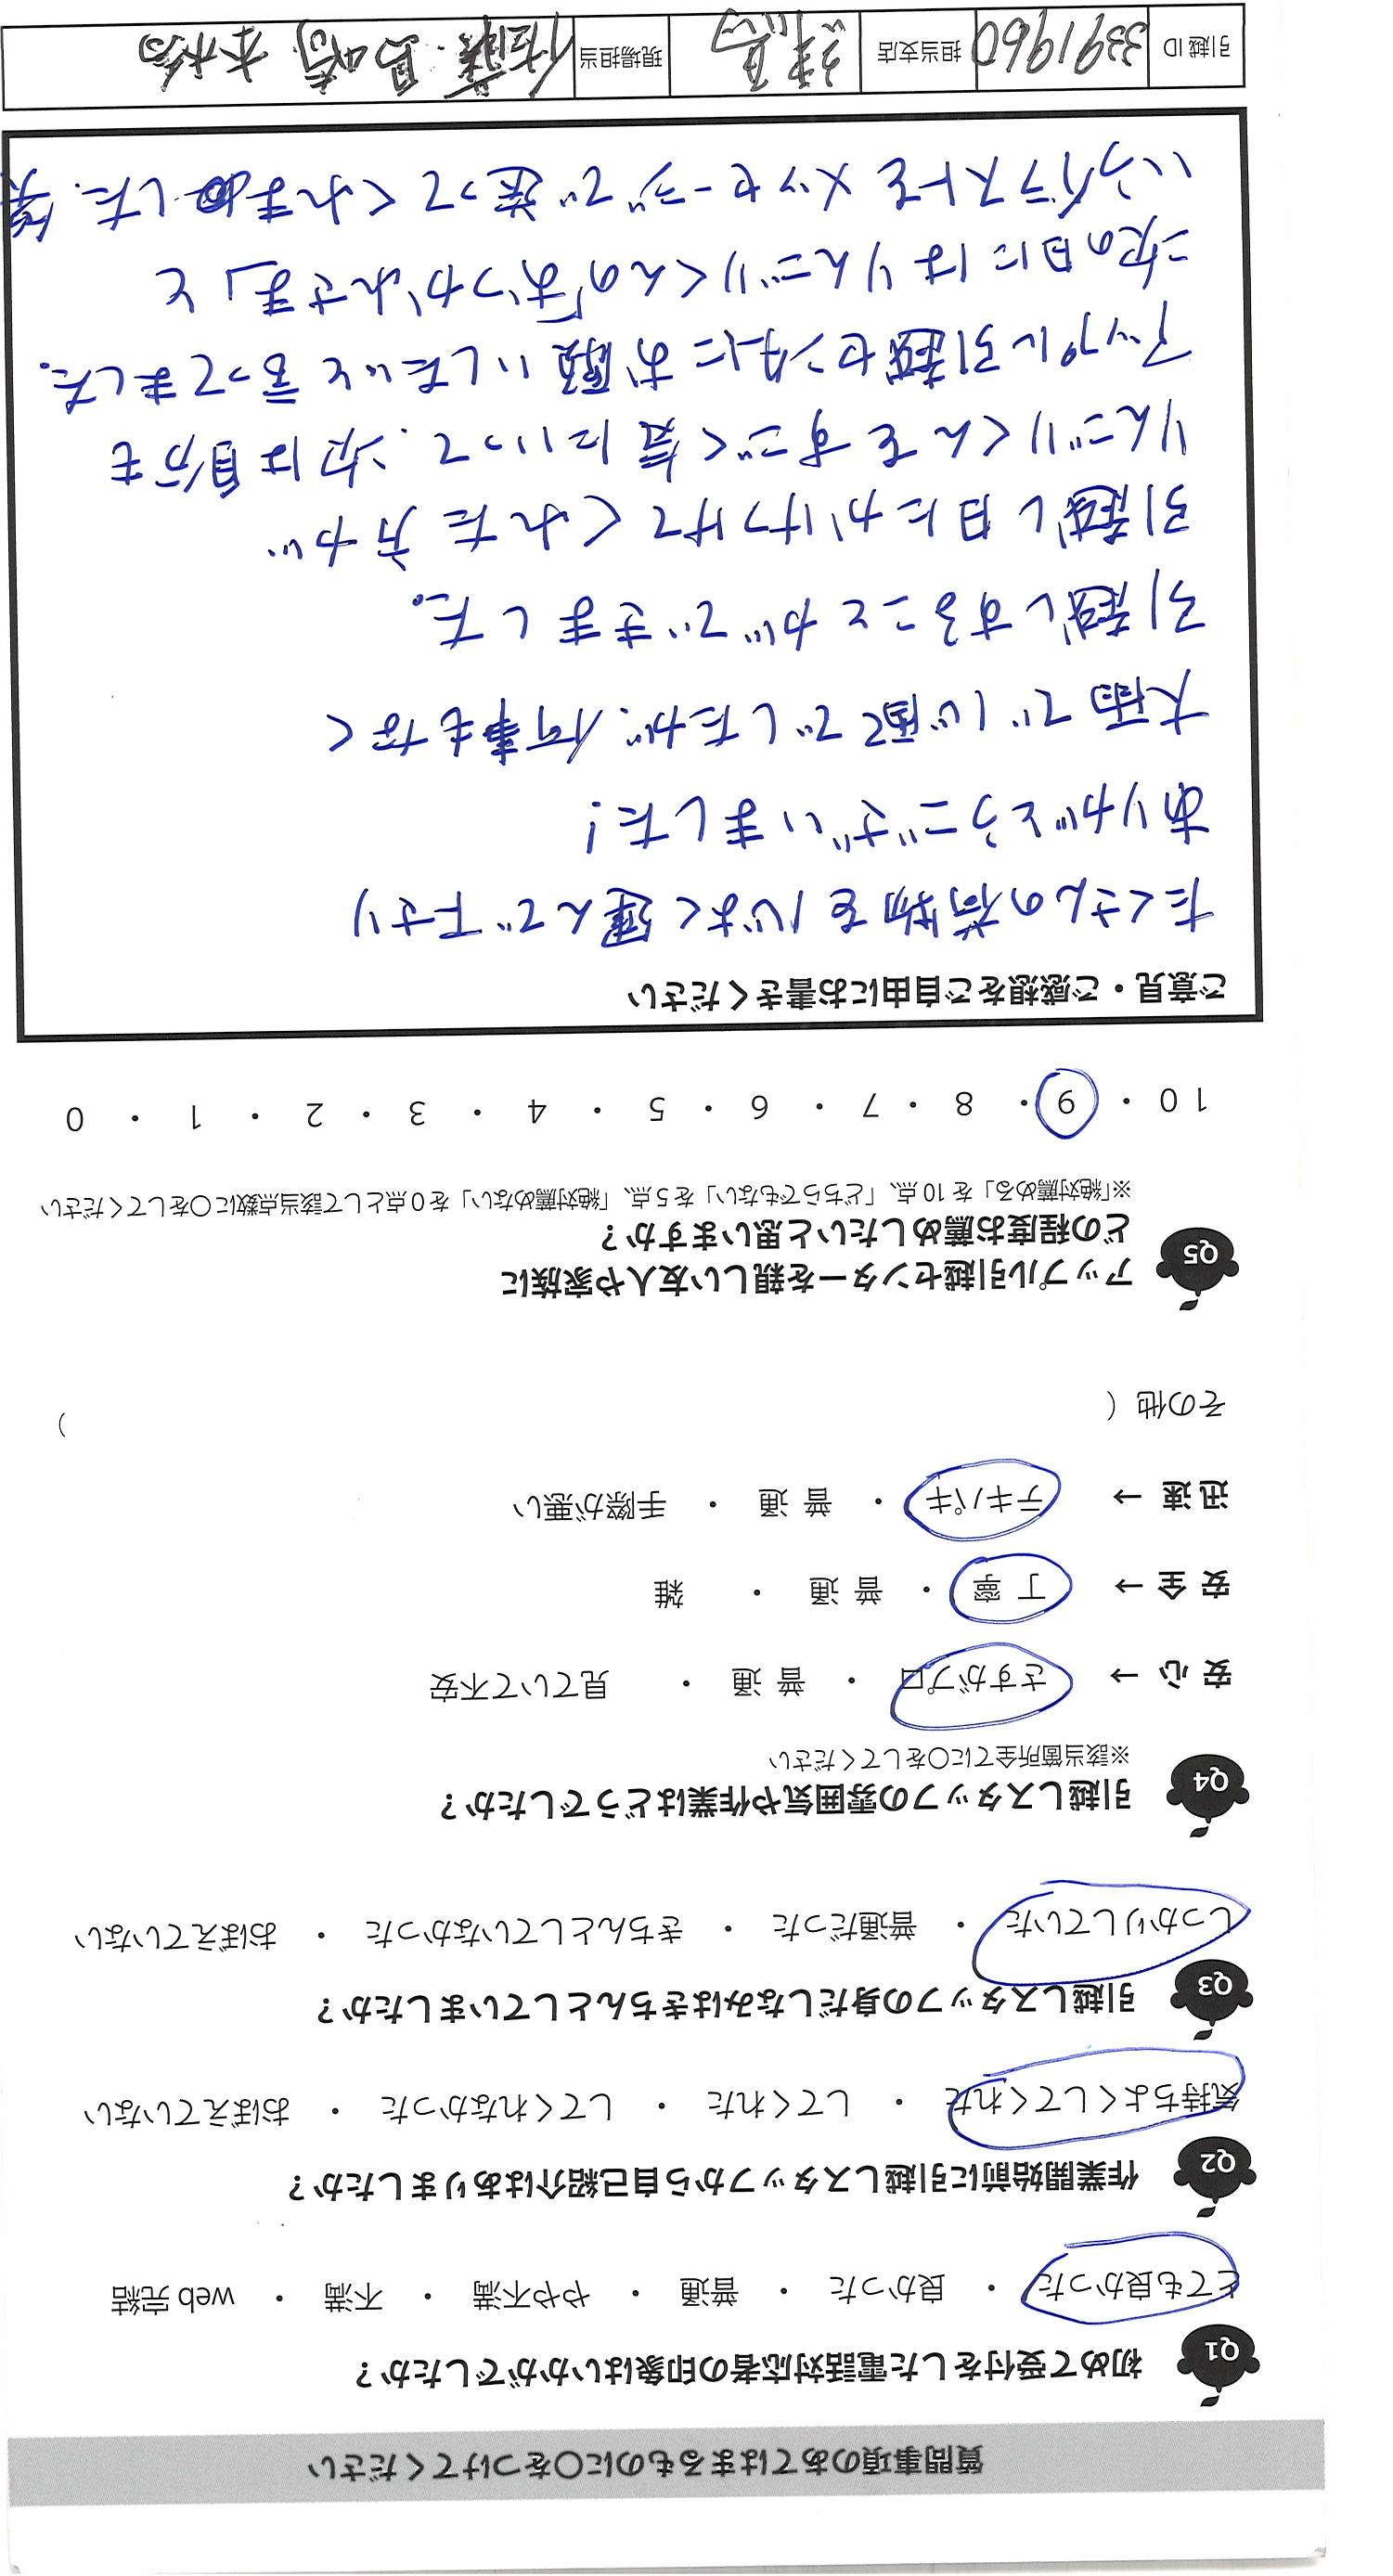 質問事項のあてはまるものに○をつけてください
Q1 初めて受付をした電話対応者の印象はいかがでしたか？
とても良かった ・ 良かった ・ 普通 ・ やや不満 ・ 不満 ・ web 完結
Q2 作業開始前に引越しスタッフから自己紹介はありましたか？
気持ちよくしてくれた ・ してくれた ・ してくれなかった ・ おぼえていない
Q3 引越しスタッフの身だしなみはきちんとしていましたか？
しっかりしていた ・ 普通だった ・ きちんとしていなかった ・ おぼえていない
Q4 引越しスタッフの雰囲気や作業はどうでしたか？
※該当箇所全てに○をしてください
安心 → さすがプロ ・ 普通 ・ 見ていて不安
安全 → 丁寧 ・ 普通 ・ 雑
迅速 → テキパキ ・ 普通 ・ 手際が悪い
その他（ ）
Q5 アップル引越センターを親しい友人や家族に
どの程度お薦めしたいと思いますか？
※「絶対薦める」を10点、「どちらでもない」を5点、「絶対薦めない」を0点として該当点数に○をしてください
10 ・ 9 ・ 8 ・ 7 ・ 6 ・ 5 ・ 4 ・ 3 ・ 2 ・ 1 ・ 0
ご意見・ご感想をご自由にお書きください
たくさんの荷物を心よく運んで下さり
ありがとうございました！
大雨で心配でしたが、何事もなく
引越しすることができました。
引越し日にかけつけてくれた方が
りんごりくんをすごく気にいって、次は自分も
アップル引越センターにお願いしたいと言ってました。
次の日にはりんごりくんの「おつかれさま」と
いうイラストをメッセージで送ってくれました。笑
引越ID 3391960 担当支店 練馬 現場担当 佐藤 島崎